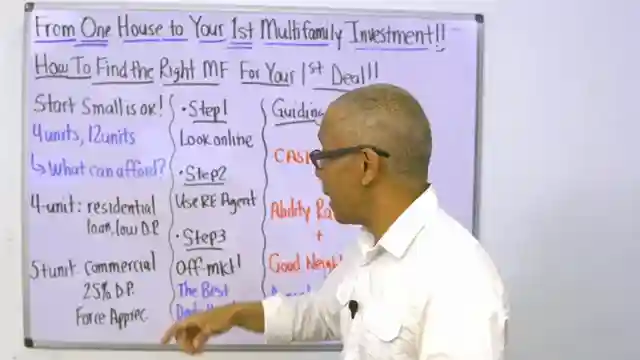 From One House to Your 1st Multifamily Investment!!
How To Find the Right MF For Your 1st Deal!!
Start Small is OK!
4 units, 12 units
↳ What can afford?
4-unit: residential
loan, low D.P.
5+ unit commercial
25% D.P.
Force Apprec
• Step 1
Look online
• Step 2
Use RE Agent
• Step 3
Off-mkt!
The Best
Guiding
Ability
+
Good